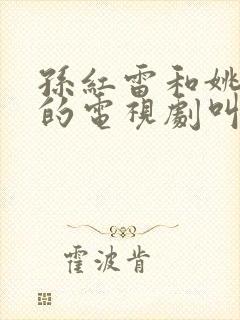 孫紅雷和姚
的電視劇叫
霍波肯